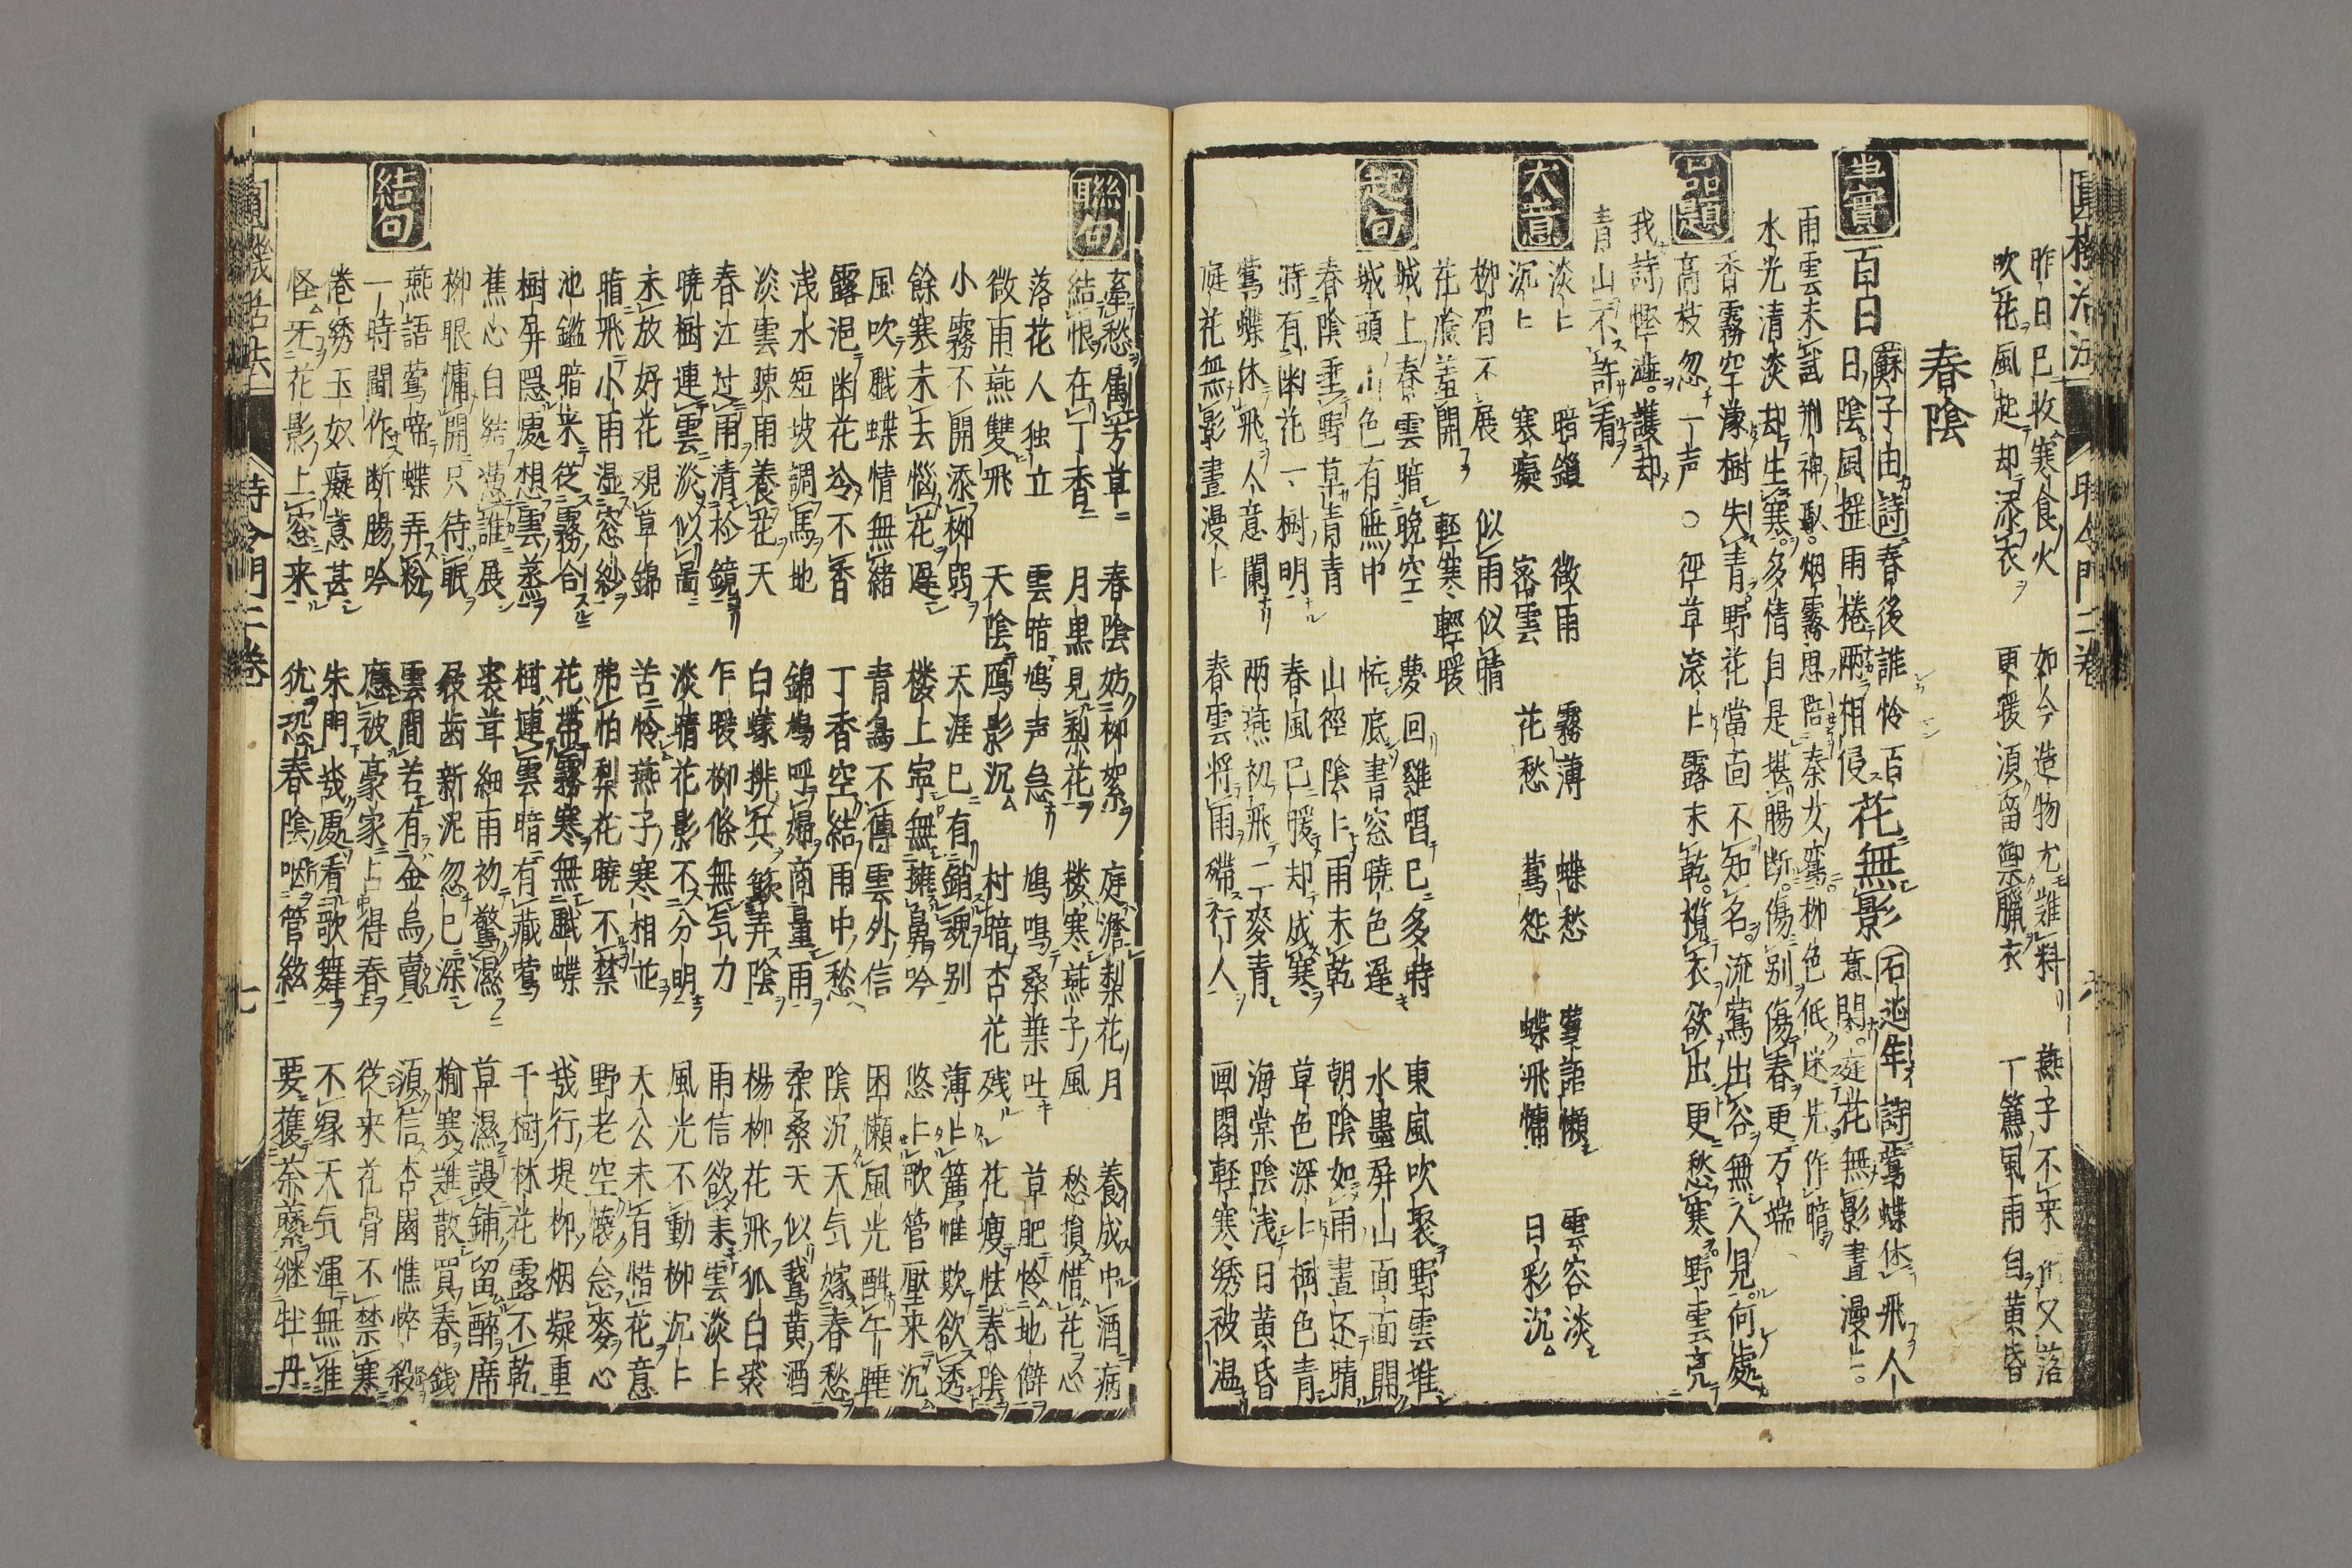 昨日已收寒食火　如今造物尤難料　燕子不来　又落
吹花風起却添衣　更暖須留禦臘衣　丁簾風雨自黄昏
春陰
事實
百日
蘇子由詩春後誰怜百日陰風搖雨棬兩相侵
花無影
石延年詩鶯蝶休飛人意闌庭花無影晝漫〻
雨雲未試荊神馭烟霧思陪秦女鸞柳色低迷先作暗
水光清淡却生寒多情自是堪腸断傷别傷春更万端
品題
香霧空濛樹失青野花當面不知名流鶯出谷無人見何處
高枝忽一声○徑草滚〻露未乾攬衣欲出更愁寒野雲亮
我詩慳澁護却
青山不許看
大意
淡〻　暗鎖　微雨　霧薄　蝶愁　鶯語懶　雲容淡
沉〻　寒凝　密雲　花愁　鶯怨　蝶飛慵　日彩沉
柳眉不展　似雨似晴
花臉羞開　輕寒輕暖
起句
城上春雲暗晚空　夢回雞唱已多時　東風吹聚野雲堆
城頭山色有無中　怪底書窓曉色遲　水墨屏山面面開
春陰垂野草青青　山徑陰〻雨未乾　朝陰如雨晝还晴
時有幽花一樹明　春風已暖却成寒　草色深〻樹色青
鶯蝶休飛人意闌　兩燕初飛二麥青　海棠陰浅日黄昏
庭花無影晝漫〻　春雲将雨礙行人　画閣輕寒綉被温
聯句
牽愁属芳草　春陰妨柳絮　庭澹梨花月　養成中酒病
結恨在丁香　月黒見梨花　楼寒燕子風　愁損惜花心
落花人独立　雲暗鳩声急　鳩鳴桑葉吐　草肥怜地僻
微雨燕雙飛　天陰鴈影沉　村暗杏花残　花瘦怯春陰
小霧不開添柳弱　天涯已有銷魂别　薄〻簾帷欺欲透
餘寒未去惱花遲　楼上寧無擁鼻吟　悠〻歌管壓来沉
風吹戲蝶情無緒　青鳥不傳雲外信　困懶風光酣午睡
露浥幽花冷不香　丁香空結雨中愁　陰沉天气嫁春愁
浅水短坡調馬地　錦鳩呼婦商量雨　柔桑天似鵞黄酒
淡雲踈雨養花天　白蟻排兵簸弄陰　楊柳花飛狐白裘
春江过雨清於鏡　乍暖柳條無气力　雨信欲来雲淡〻
曉樹連雲淡似畵　淡晴花影不分明　風光不動柳沉〻
未放好花覌草錦　苦怜燕子寒相並　天公未肯惜花意
暗飛小雨湿窓紗　弗怕梨花曉不禁　野老空懐念麥心
池鑑暗来従霧合　花帶霧寒無戲蝶　幾行堤柳烟凝重
樹屏隠處想雲蒸　樹連雲暗有藏鶯　千樹林花露不乾
蕉心自結憑誰展　裘茸細雨初驚濕　草濕謾鋪留醉席
柳眼慵開只待眠　屐齒新泥忽已深　榆寒難散買春錢
結句
燕語鶯啼蝶弄粉　雲間若有金烏賣　須信杏園憔悴殺
一時間作断腸吟　應被豪家占得春　従来花骨不禁寒
巻綉玉奴癡意甚　朱門幾處看歌舞　不縁天气渾無准
怪无花影上窓来　犹恐春陰咽管絃　要護荼蘼継牡丹
圓機活法　時令門二卷　七